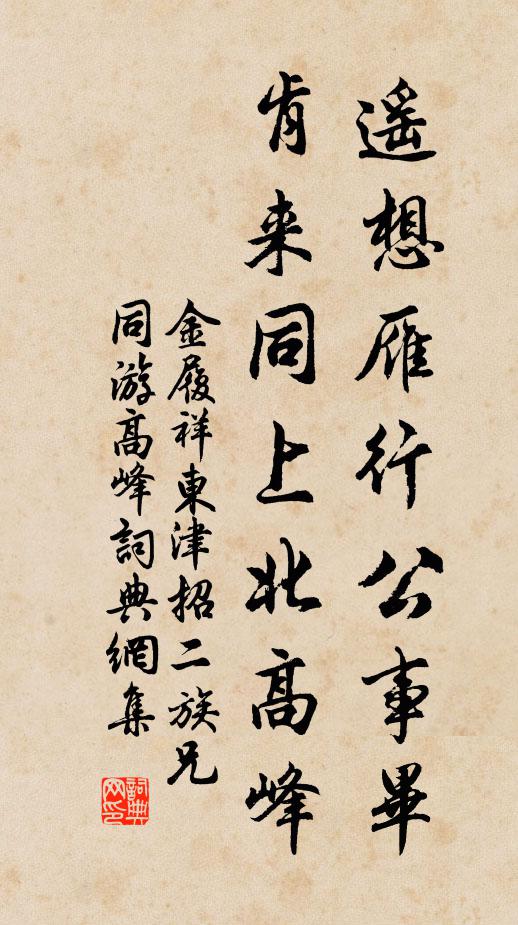 遥想雁行公事畢
肯来同上北高峰
金履祥東津招二族兄
同游高峰詞典網集
詞典网印